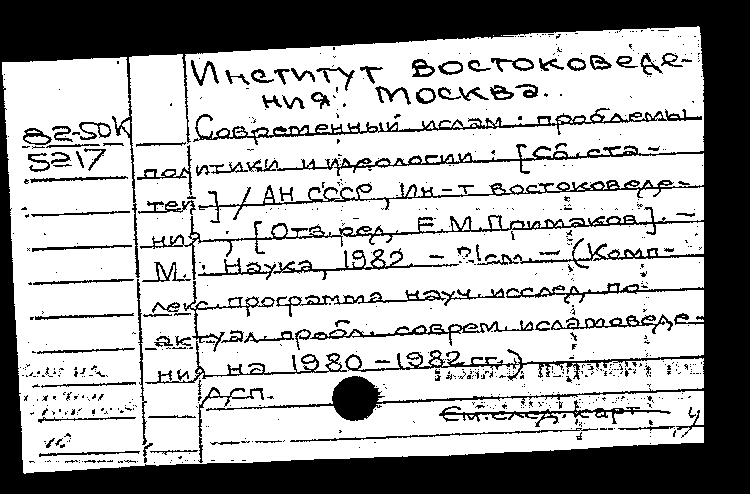 Институт востоковеде-
ния. Москва.
82-50К
5217
Современный ислам: проблемы
политики и идеологии: [Сб. ста-
тей] / АН СССР, Ин-т востоковеде-
ния; [Отв. ред. Е.М. Примаков]. -
М.: Наука, 1982. - 21см. - (Комп-
лекс. программа науч. исслед. по
актуал. пробл. соврем. исламоведе-
ния на 1980-1982 гг.)
Дсп.
См. след. карт